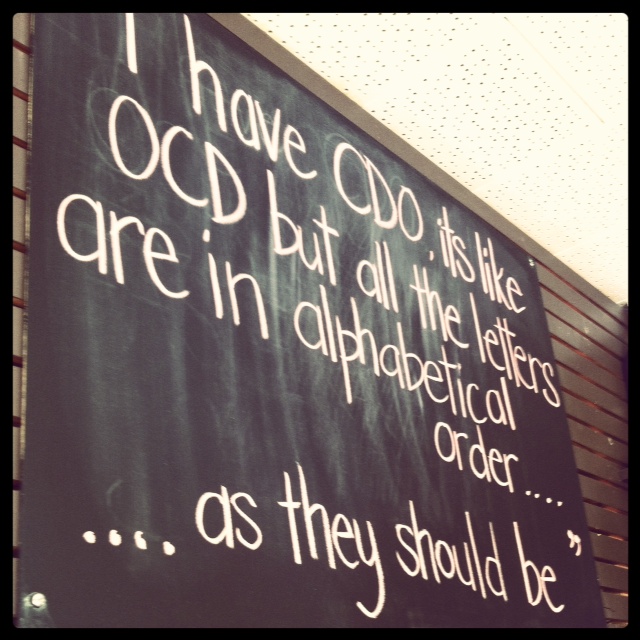 I have CDO, its like
OCD but all the letters
are in alphabetical
order....
.... as they should be”